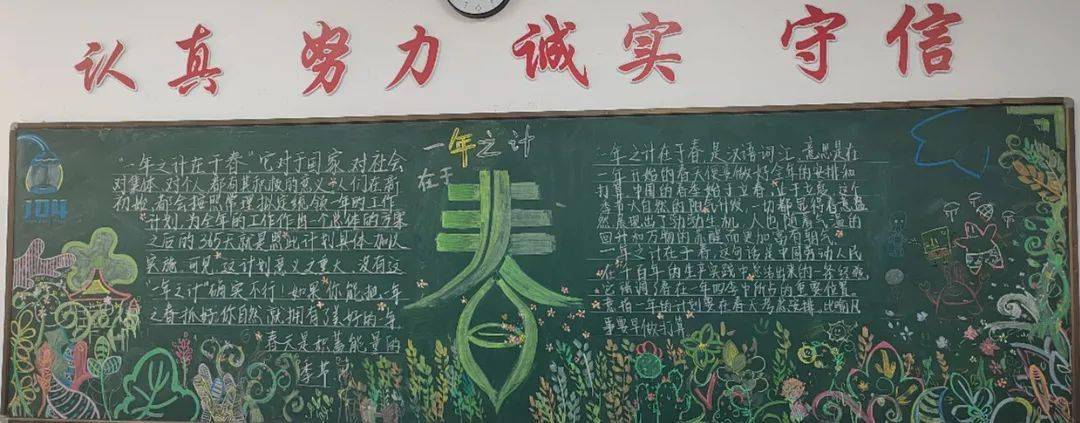 认真 努力 诚实 守信
一年之计
在于
春
104
"一年之计在于春",它对于国家、对社会
对集体、对个人,都有其积极的意义,人们在新
年初始,都会按照常理拟定统领一年的工作
计划,为全年的工作作出一个总体的方案
之后的365天就是照此计划具体加以
实施,可见,这计划意义之重大,没有这
"一年之计"确实不行!如果你能把一年
之春抓好,你自然就拥有美好的一年
春天是积蓄能量的
季节
一年之计在于春是汉语词汇,意思是在
一年开始的春天便要做好全年的安排和
打算,中国的春季始于立春,
大自然的阳气升发,一切都显得春意盎
然展现出了勃勃生机,人也随着气温的
回升和万物的苏醒而更加富有朝气。
一年之计在于春,这句话是中国劳动人民
在千百年的生产实践中总结出来的一条经验,
它强调了春在一年四季中所占的重要位置。
意指一年的计划要在春天考虑安排,比喻凡
事要早做打算